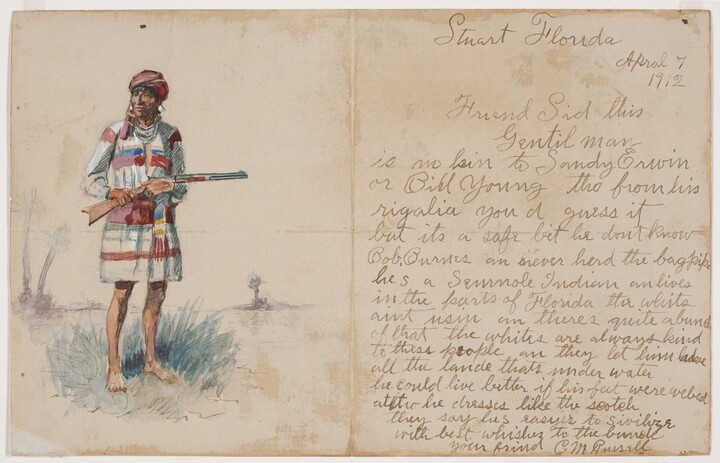 Stuart Florida
April 7
1912
Friend Sid this
Gentil man
is no kin to Sandy Erwin
or Bill Young tho from his
rigalia you d guess it
but its a safe bet he dont know
Bob Burnes an never herd the bagpipe
hes a Semnole Indian an lives
in the parts of Florida the whits
aint usin an theres quite a bunch
of that the whites are always kind
to these people an they let him have
all the lande thats under water
he could live better if his feet were webed
altho he dresses like the scotch
they say hes easyer to sivilize
with best whishes to the bunch
your frind C M Russell